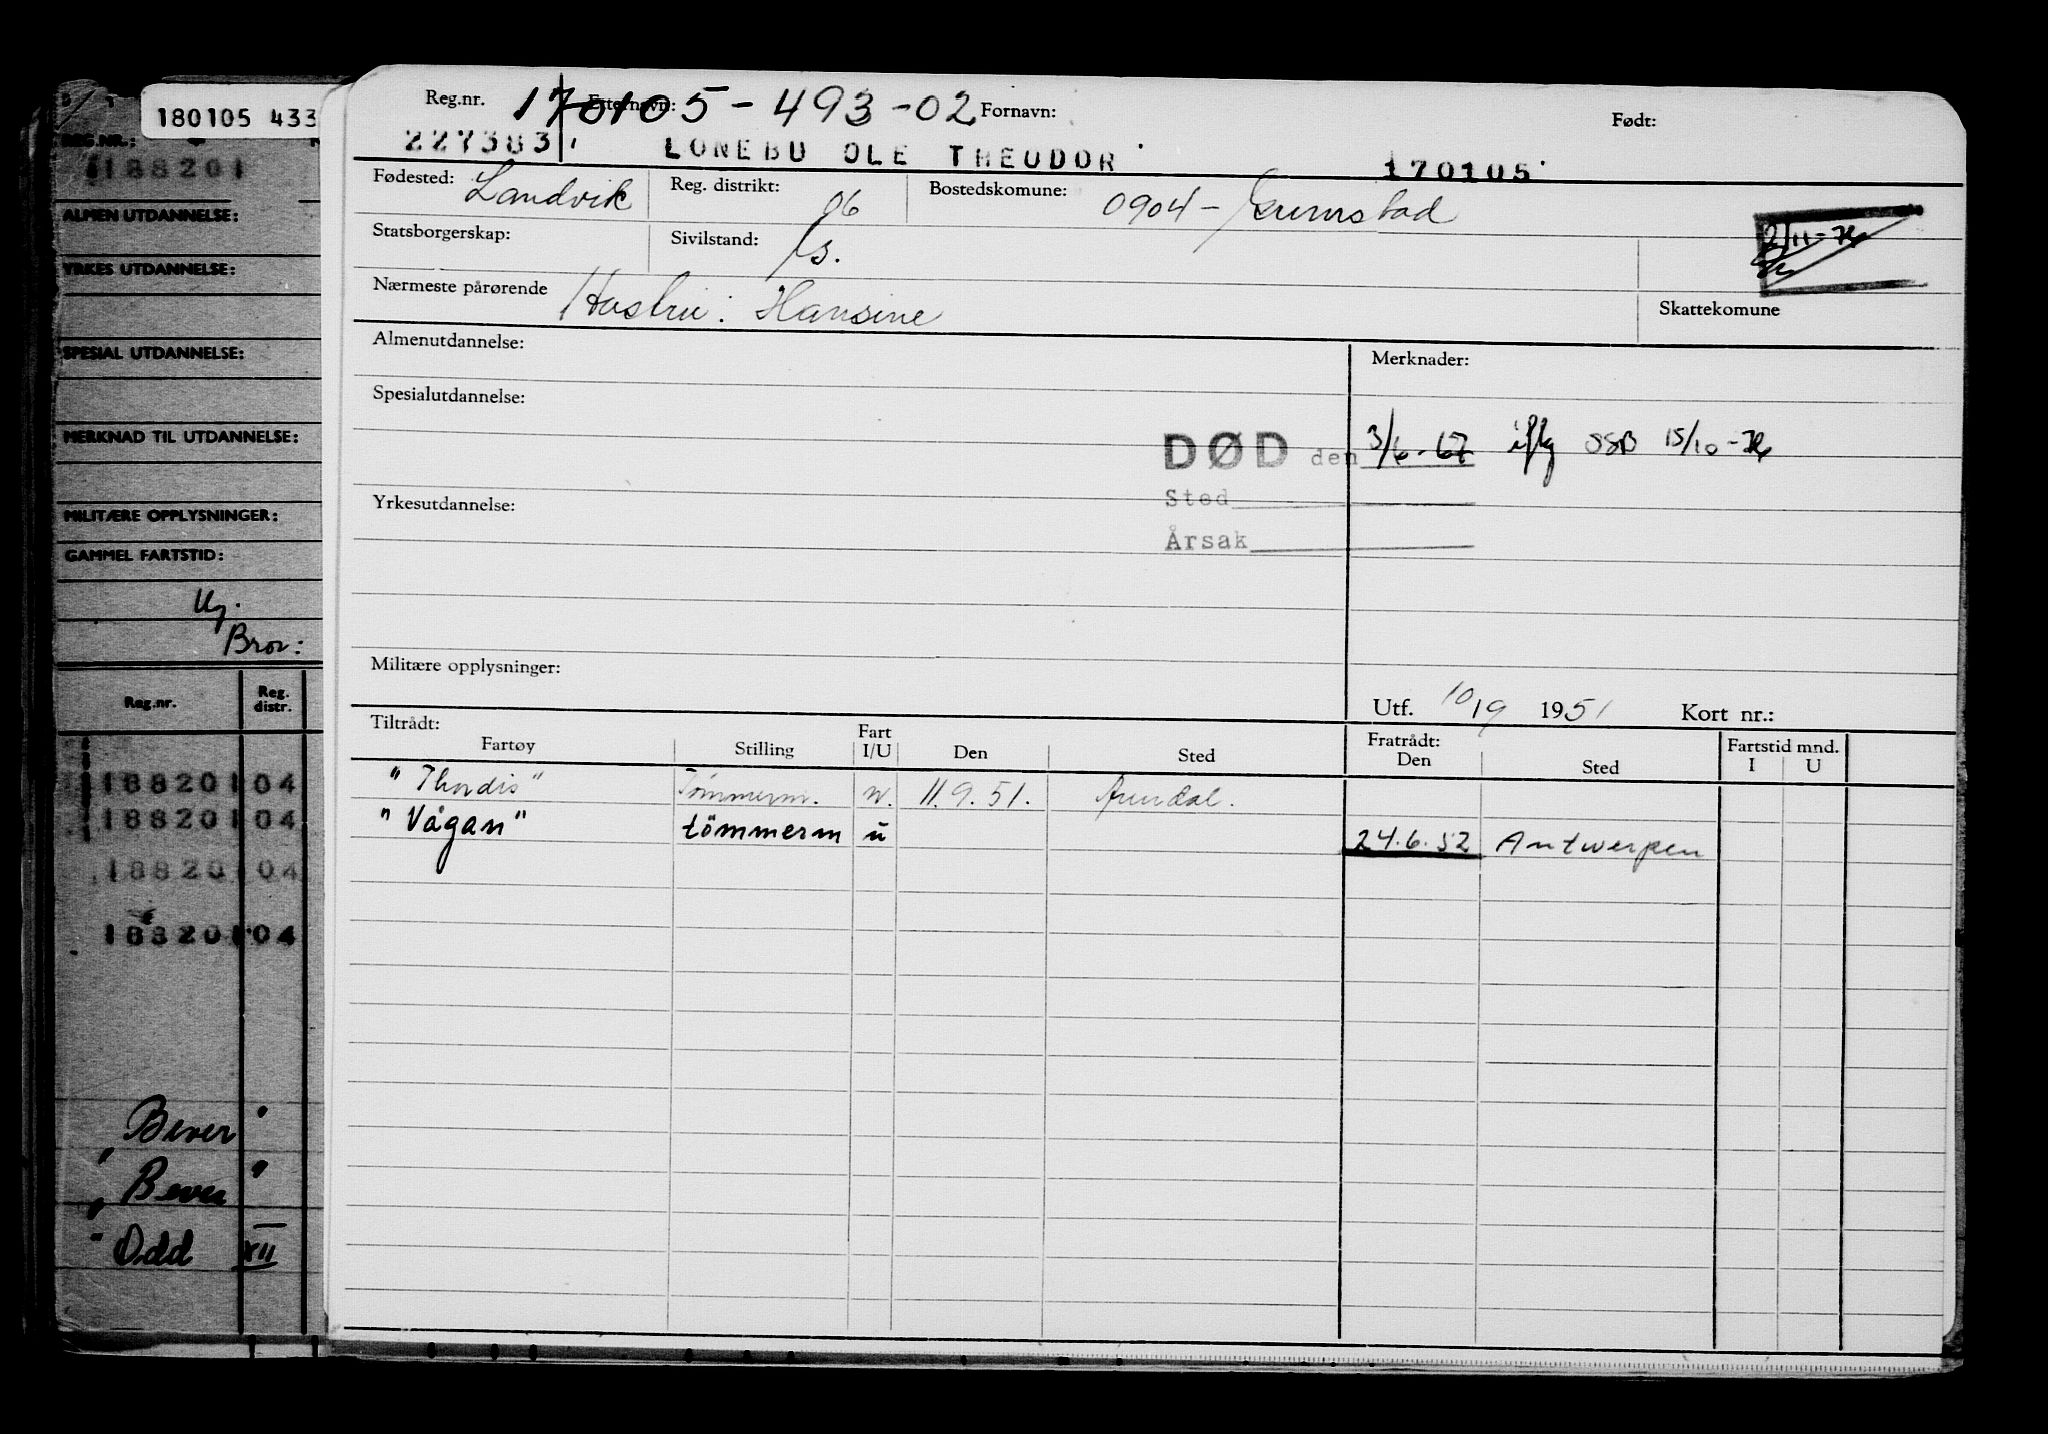 180105 433
REG.NR.:
188201
ALMEN UTDANNELSE:
YRKES UTDANNELSE:
SPESIAL UTDANNELSE:
MERKNAD TIL UTDANNELSE:
MILITÆRE OPPLYSNINGER:
GAMMEL FARTSTID:
Bror:
Reg.nr. Reg. distr.
188201 04
188201 04
188201 04
188201 04
Bever"
"Bever"
"Odd XII
Reg.nr. 170105-493-02 Etternavn: Fornavn: Født:
227383 LONEBU OLE THEODOR 170105
Fødested: Landvik Reg. distrikt: 06 Bostedskomune: 0904 - Grimstad
Statsborgerskap: Sivilstand: G. 2/11-76
Nærmeste pårørende Hustru: Hansine Skattekomune
Almenutdannelse: Merknader:
Spesialutdannelse:
DØD den 3/6-67 iflg SSB 15/10-76
Sted
Yrkesutdannelse:
Årsak
Militære opplysninger:
Utf. 10/9 1951 Kort nr.:
Tiltrådt: Fratrådt: Fartstid mnd.
Fartøy Stilling Fart I/U Den Sted Den Sted I U
"Thordis" Tømmerm. u. 11.9.51. Arendal.
"Vågan" tömmerm u 24.6.52 Antwerpen